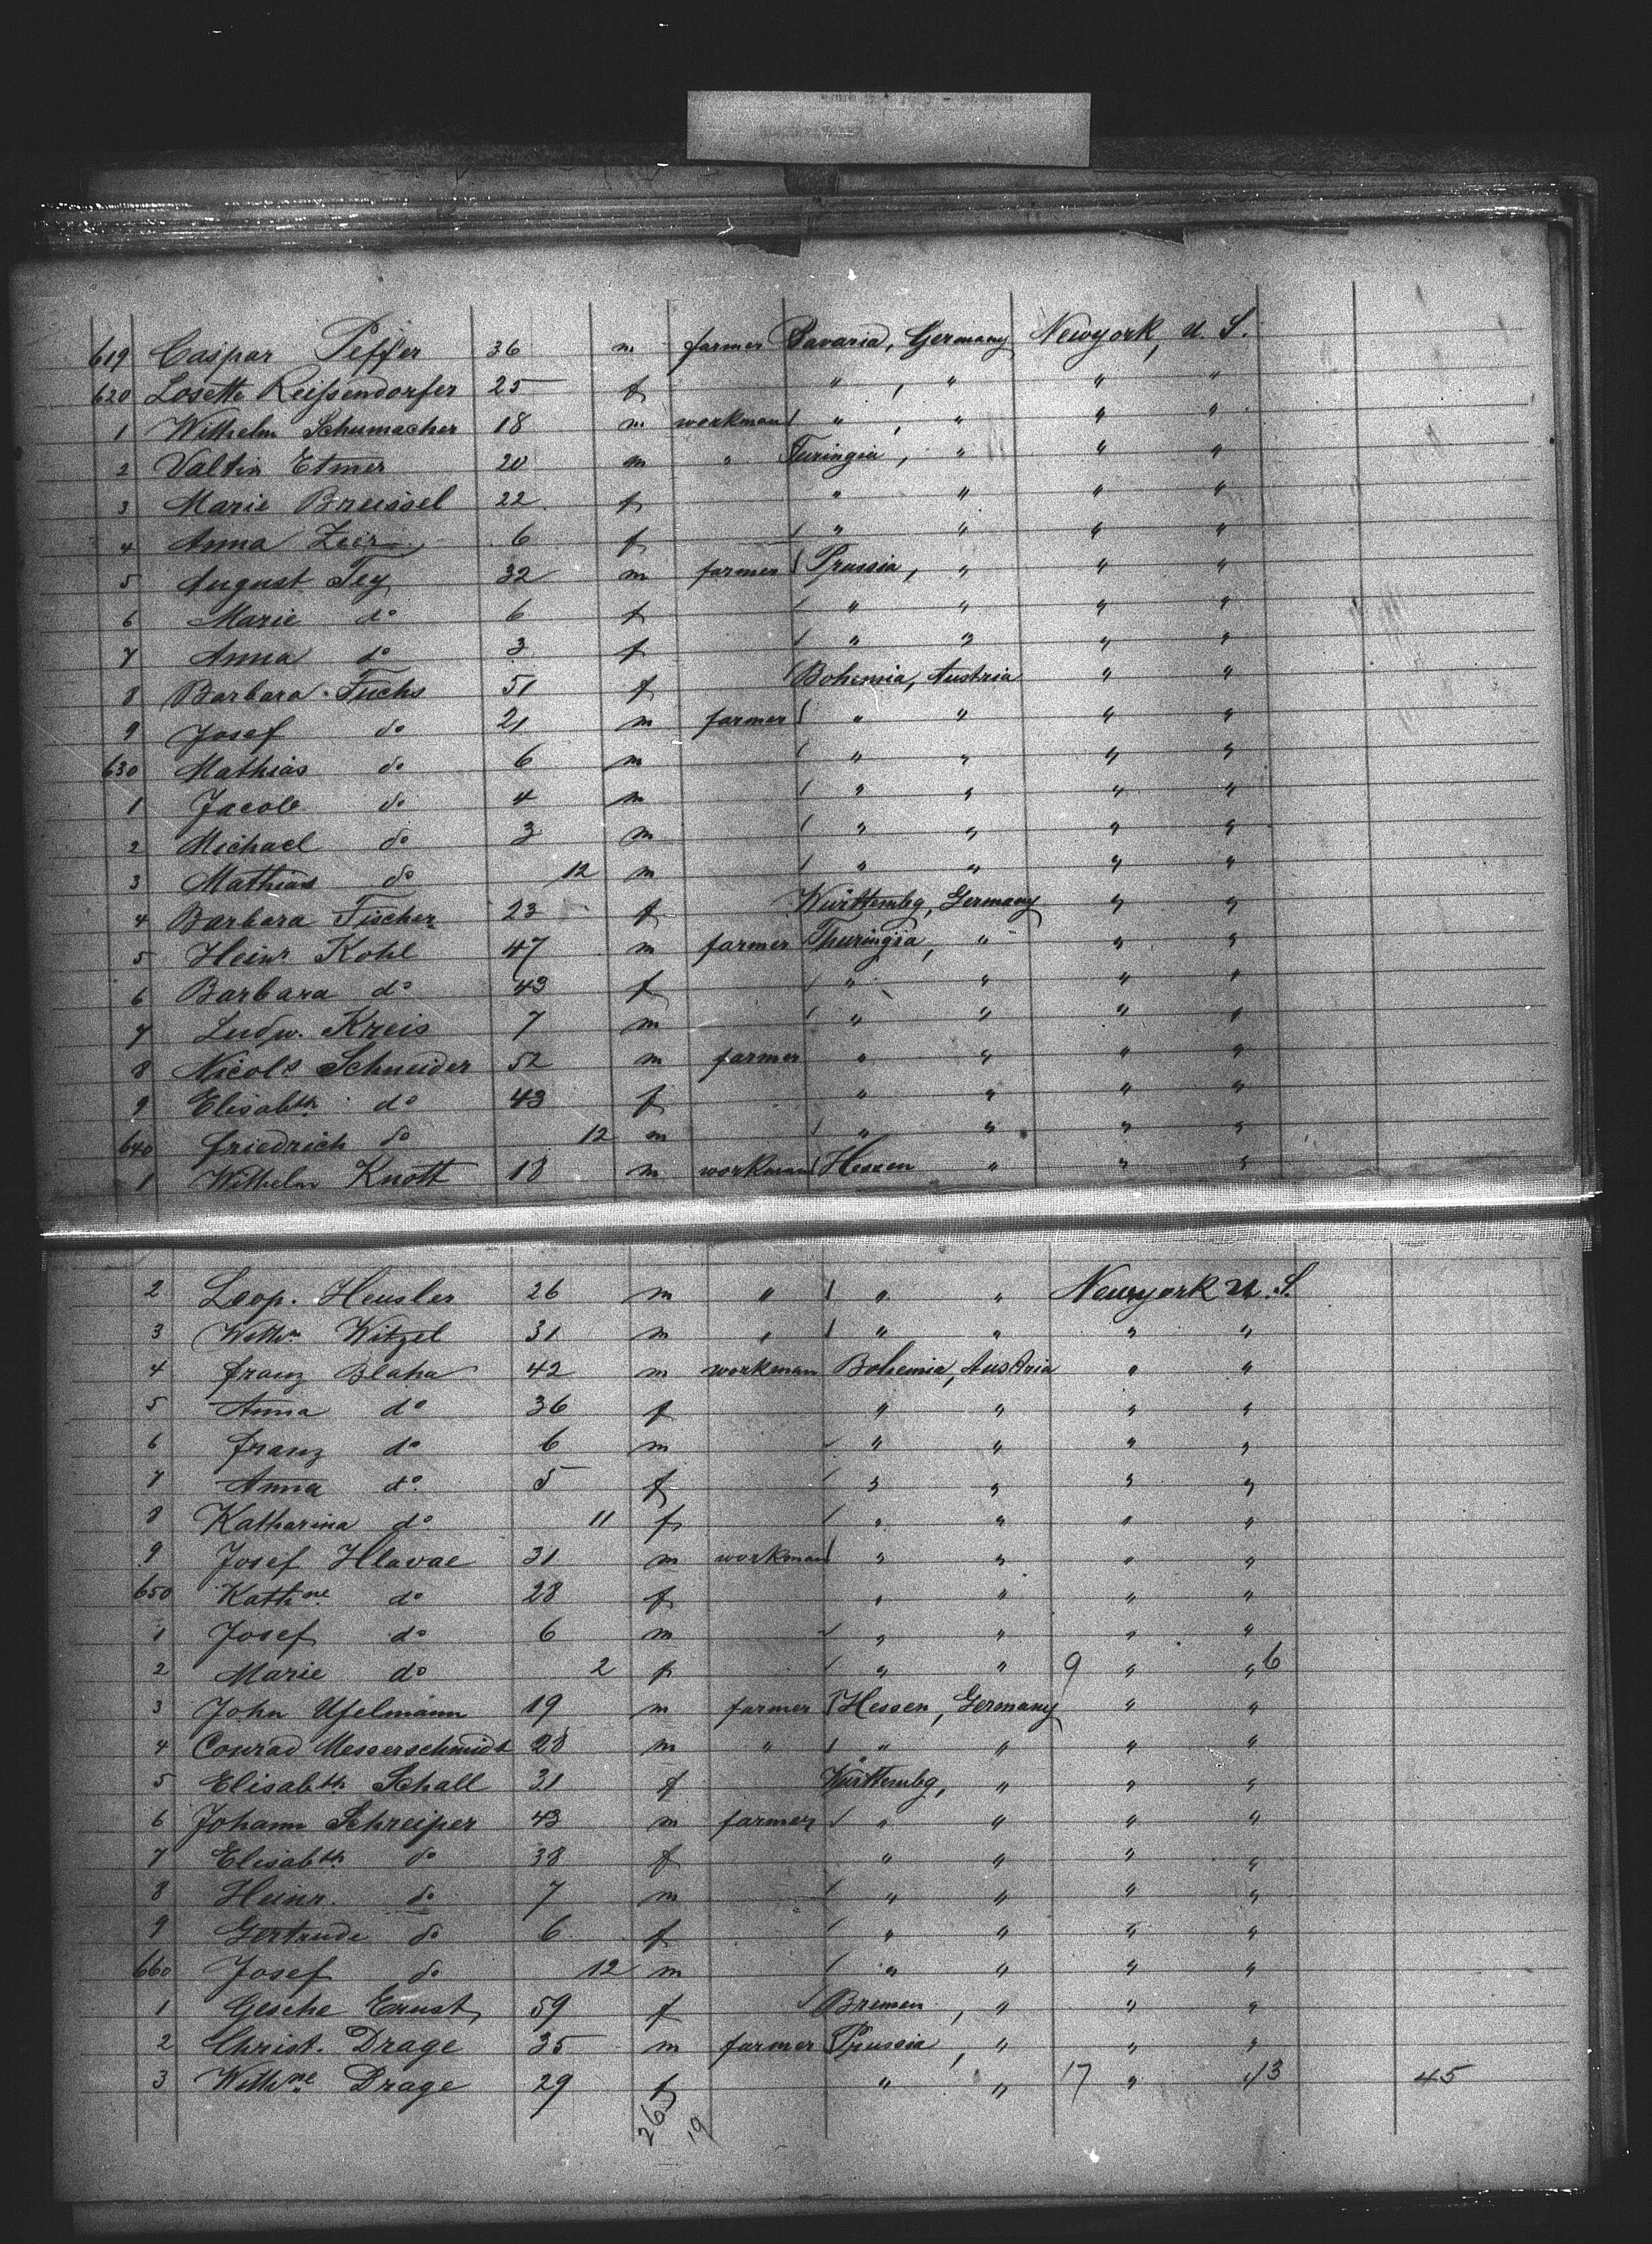 619 Caspar Peffer 36 m farmer Bavaria, Germany Newyork, U. S.
620 Losette Reissendorfer 25 f " , " " "
1 Wilhelm Schumacher 18 m workman " , " " "
2 Valtin Etmer 20 m " Turingia, " " "
3 Marie Breissel 22 f " " " "
4 Anna 6 f " " " "
5 August Fey 32 m farmer Prussia, " " "
6 Marie do 6 f " " " "
7 Anna do 3 f " " " "
8 Barbara Fuchs 51 f Bohemia, Austria " "
9 Josef do 21 m farmer " " " "
630 Mathias do 6 m " " " "
1 Jacob do 4 m " " " "
2 Michael do 3 m " " " "
3 Mathias do 12 m " " " "
4 Barbara Fischer 23 f Württembg, Germany " "
5 Heinr. Kohl 47 m farmer Thuringia, " " "
6 Barbara do 43 f " " " "
7 Ludw. Kreis 7 m " " " "
8 Nicols Schneider 52 m farmer " " " "
9 Elisabth do 43 f " " " "
640 Friedrich do 12 m " " " "
1 Wilhelm Knott 18 m workman Hessen " " "
2 Leop. Heusler 26 m " " " Newyork U. S.
3 Wilhm Witzel 31 m " " " " "
4 Franz Blaha 42 m workman Bohemia, Austria " "
5 Anna do 36 f " " " "
6 Franz do 6 m " " " "
7 Anna do 5 f " " " "
8 Katharina do 11 f " " " "
9 Josef Hlavac 31 m workman " " " "
650 Kathne do 28 f " " " "
1 Josef do 6 m " " " "
2 Marie do 2 f " " 9 " " 6
3 John Ufelmann 19 m farmer Hessen, Germany " "
4 Conrad Messerschmidt 28 m " " " " "
5 Elisabth Schall 21 f Württembg, " " "
6 Johann Schreiper 43 m farmer " " " "
7 Elisabth do 38 f " " " "
8 Heinr. do 7 m " " " "
9 Gertrude do 6 f " " " "
660 Josef do 12 m " " " "
1 Gesche Ernst 59 f Bremen, " " "
2 Christ. Drage 35 m farmer Prussia, " " "
3 Wilhne Drage 29 f " " 17 " " 13 45
26 19